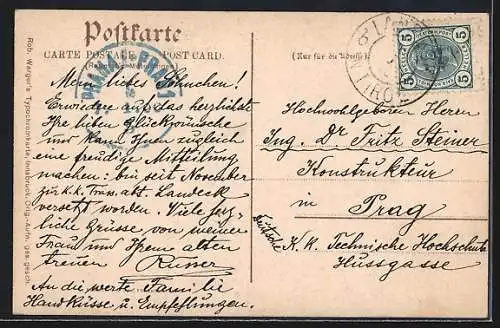 Postkarte
CARTE POSTALE POST CARD.
(Nur für die Adresse)
Rob. Warger's Typochromkarte, Innsbruck Orig.-Aufn. Ges. gesch.
PRAHA PRAG
5 5
5 5
Mein liebes Söhnchen!
Erwiedere auf das herzlichste
Ihre lieben Glückwünsche
und kann Ihnen zugleich
eine freudige Mitteilung
machen: bin seit November
zur k.k. Trass. abt. Landeck
versetzt worden. Viele herz-
liche Grüsse von meiner
Frau und Ihrem alten
treuen
An die werte Familie
Handküsse u. Empfehlungen.
Hochwohlgeboren Herrn
Ing. Dr Fritz Steiner
Konstrukteur
in
Prag
Deutsche K. K. Technische Hochschule
Hussgasse